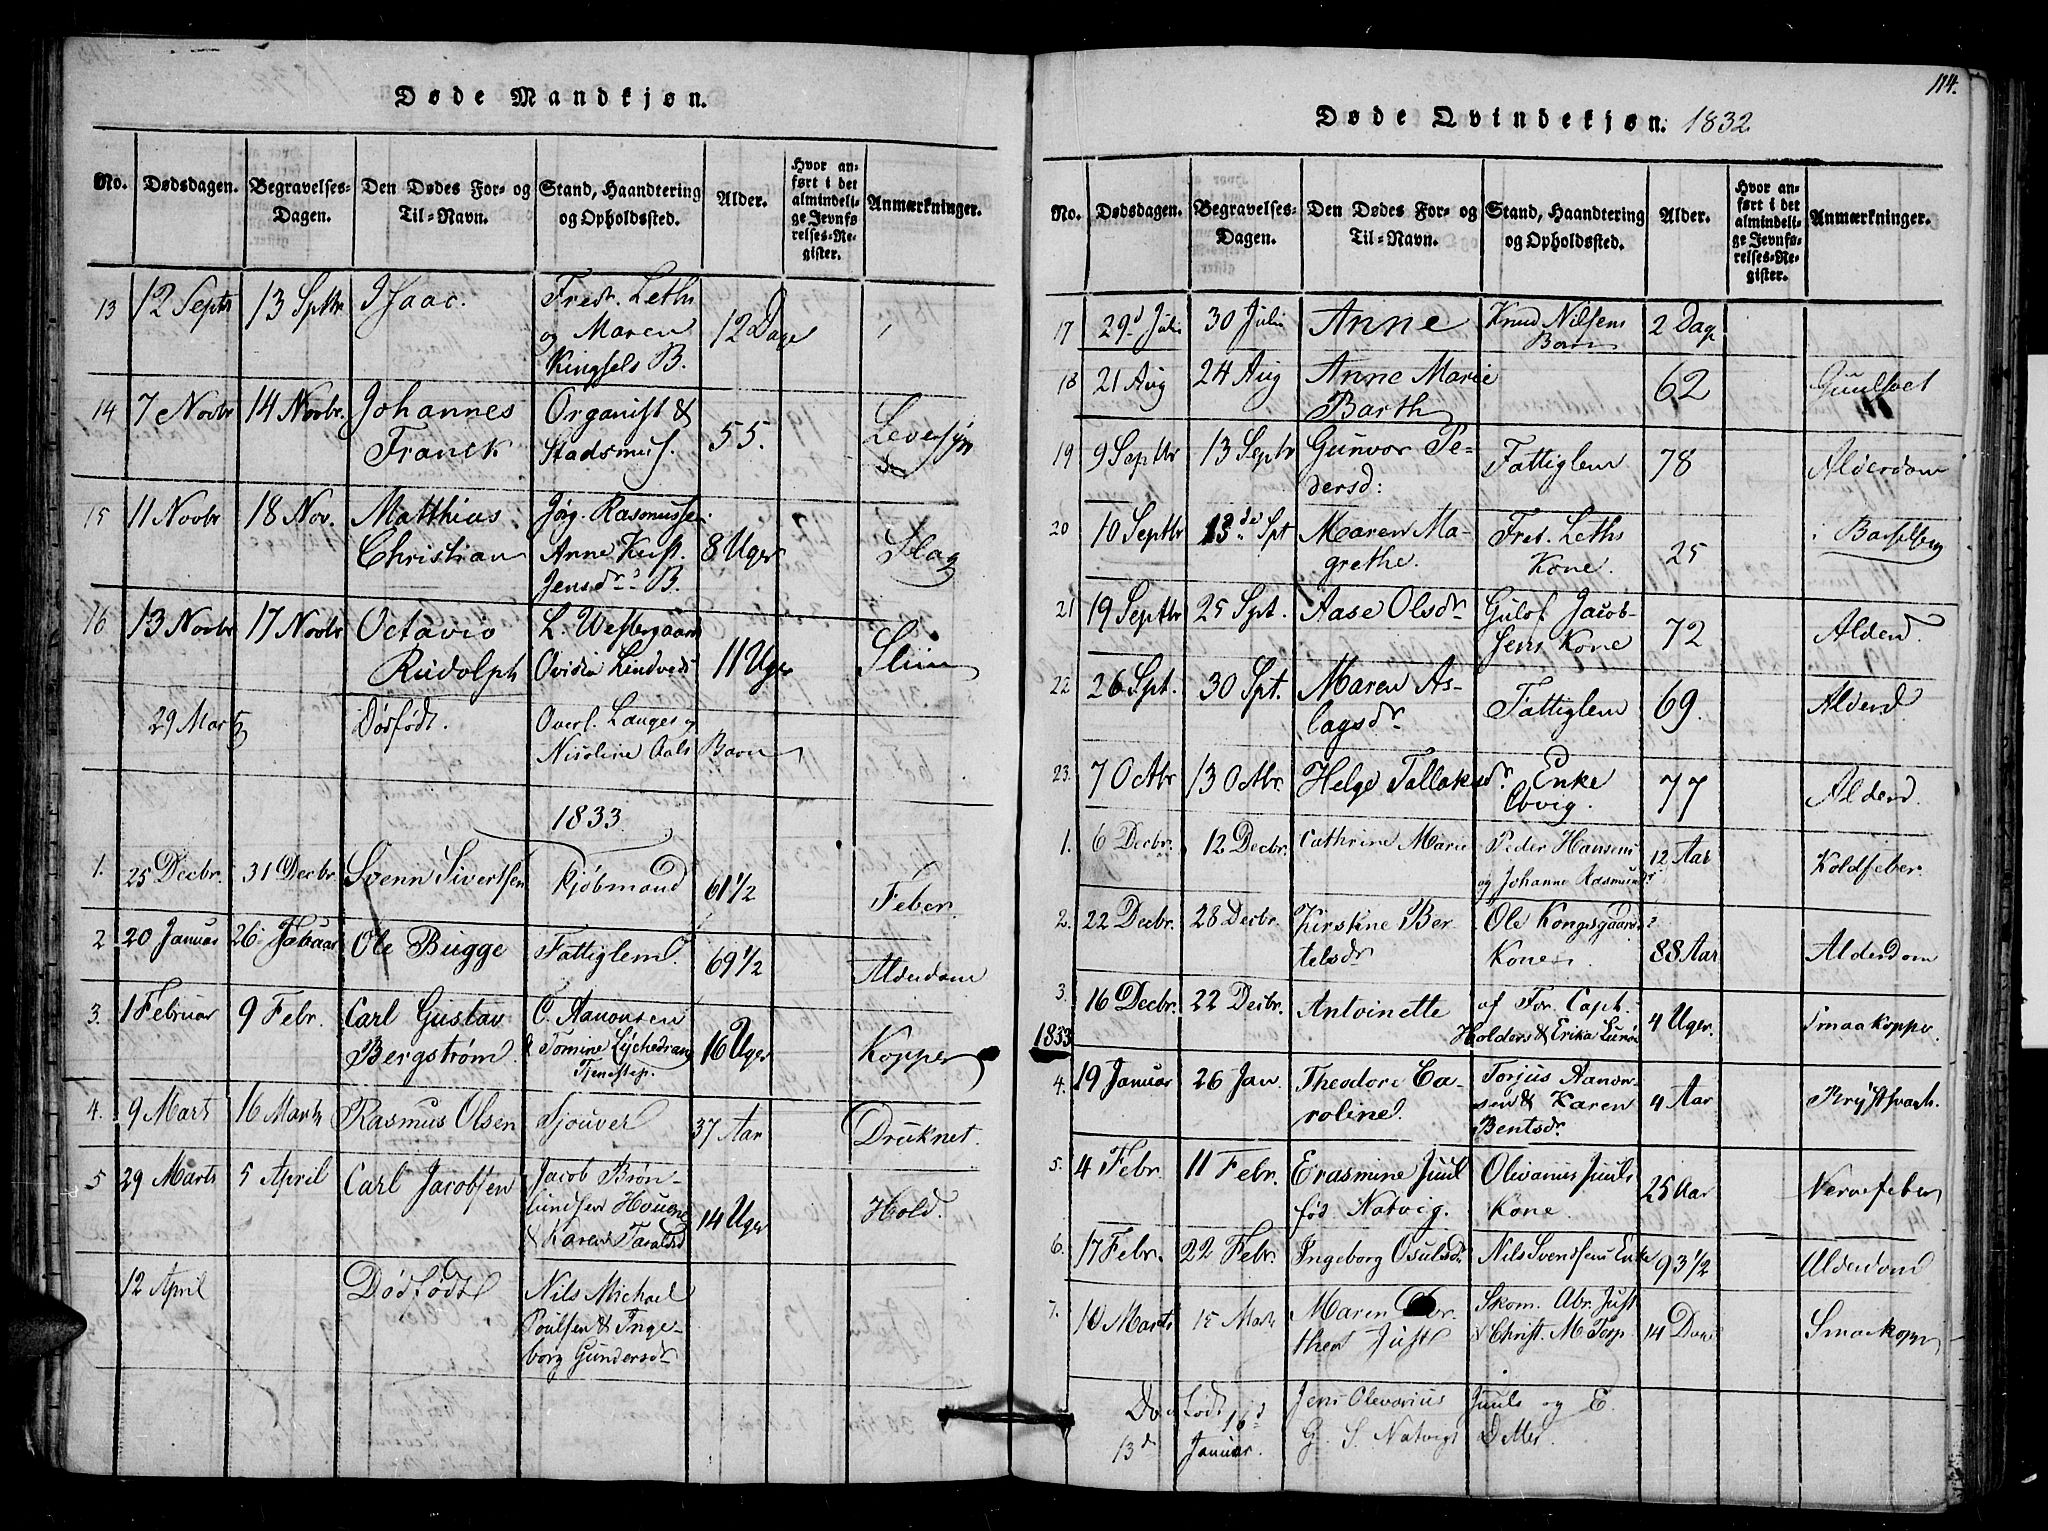 Døde Mandkjøn.
No. Dødsdagen. Begravelses-Dagen. Den Dødes For- og Til-Navn. Stand, Haandtering og Opholdssted. Alder. Hvor anført i det almindelige Jevnførelses-Register. Anmærkninger.
13 12 Septr 13 Sptbr Isaac. Fredr. Leths og Maren Kingsels B. 12 Dage
14 7 Novbr 14 Novbr. Johannes Franck Organist & Stadsmus. 55.
15 11 Novbr 18 Nov. Matthias Christian Jørg. Rasmussen Anne Kirst. Jensdr. B. 8 Uger Slag
16 13 Novbr 17 Novbr Octavio Rudolph L. Westergaard Ovidia Lindveds 11 Uger Sliim
29 Martz Dødfødt. Overl. Langes og Nicoline Aals Barn
1833.
1. 25 Decbr. 31 Decbr Svenn Sivertsen Kjøbmand 61 1/2 Feber.
2 20 Januar 26 Januar Ole Bugge Fattiglem 69 1/2 Alderdom
3. 1 Februar 9 Febr. Carl Gustav Bergstrøm. C. Aanonsen & Tomine Tjenestep. 16 Uger Kopper
4. 9 Marts 16 Marts Rasmus Olsen Sjouver 37 Aar Druknet.
5 29 Marts 5 April Carl Jacobsen Jacob Brønlundsen & Karen Taraldsd 14 Uger Hold.
12 April Dødfødt Nils Michael Poulsen & Ingeborg Gundersdr
114.
Døde Qvindekjøn. 1832
No. Dødsdagen. Begravelses-Dagen. Den Dødes For- og Til-Navn. Stand, Haandtering og Opholdssted. Alder. Hvor anført i det almindelige Jevnførelses-Register. Anmærkninger.
17 29d Juli 30 Julii Anne Knud Nilsens Barn 2 Dage
18 21 Aug 24 Aug Anne Marie Barth 62 Guulsot
19 9 Septbr 13 Septr Gunvor Pedersd: Fattiglem 78 Alderdom
20 10 Septbr 13de Spt Maren Magrethe. Fred. Leths Kone. 25 Barselseng
21 19 Septbr 25 Spt. Aase Olsdr Gulof Jacobsens Kone 72 Alderd.
22 26 Spt. 30 Spt. Maren Aslagsdr Fattiglem 69. Alderd
23. 7 Octbr 13 Octbr. Helge Tallaksdr. Enke 77 Alderd.
1. 6 Decbr. 12 Decbr. Cathrine Marie Peder Hansens og Johanne Rasmusdr 12 Aar Koldfeber.
2. 22 Decbr. 28 Decbr. Kirstine Bertelsdr Ole Kongsgaards Kone. 88 Aar Alderdom
3. 16 Decbr. 22 Decbr. Antoinette af For. Capt. Holders & Erika 4 Uger. Smaakopper
1833
4. 19 Januar 26 Jan. Theodore Caroline. Torjus Aanonsen & Karen Bentsdr. 4 Aar Brystsvagh.
5. 4 Febr. 11 Febr. Erasmine Juul fød Natvig. Olivarius Juuls Kone. 25 Aar Nervefeber
6. 17 Febr. 22 Febr. Ingeborg Osulsdr Nils Svendsens Enke 93 1/2 Alderdom
7. 10 Marts 15 Mart. Maren Dorthea Just Skom. Abr. Just & Christ. M. Torp 14 Dage Smaakopper
Dødfødt 13d Januar. 16d Jens Olevarius Juuls og E. G. S. Natvigs D Mer.